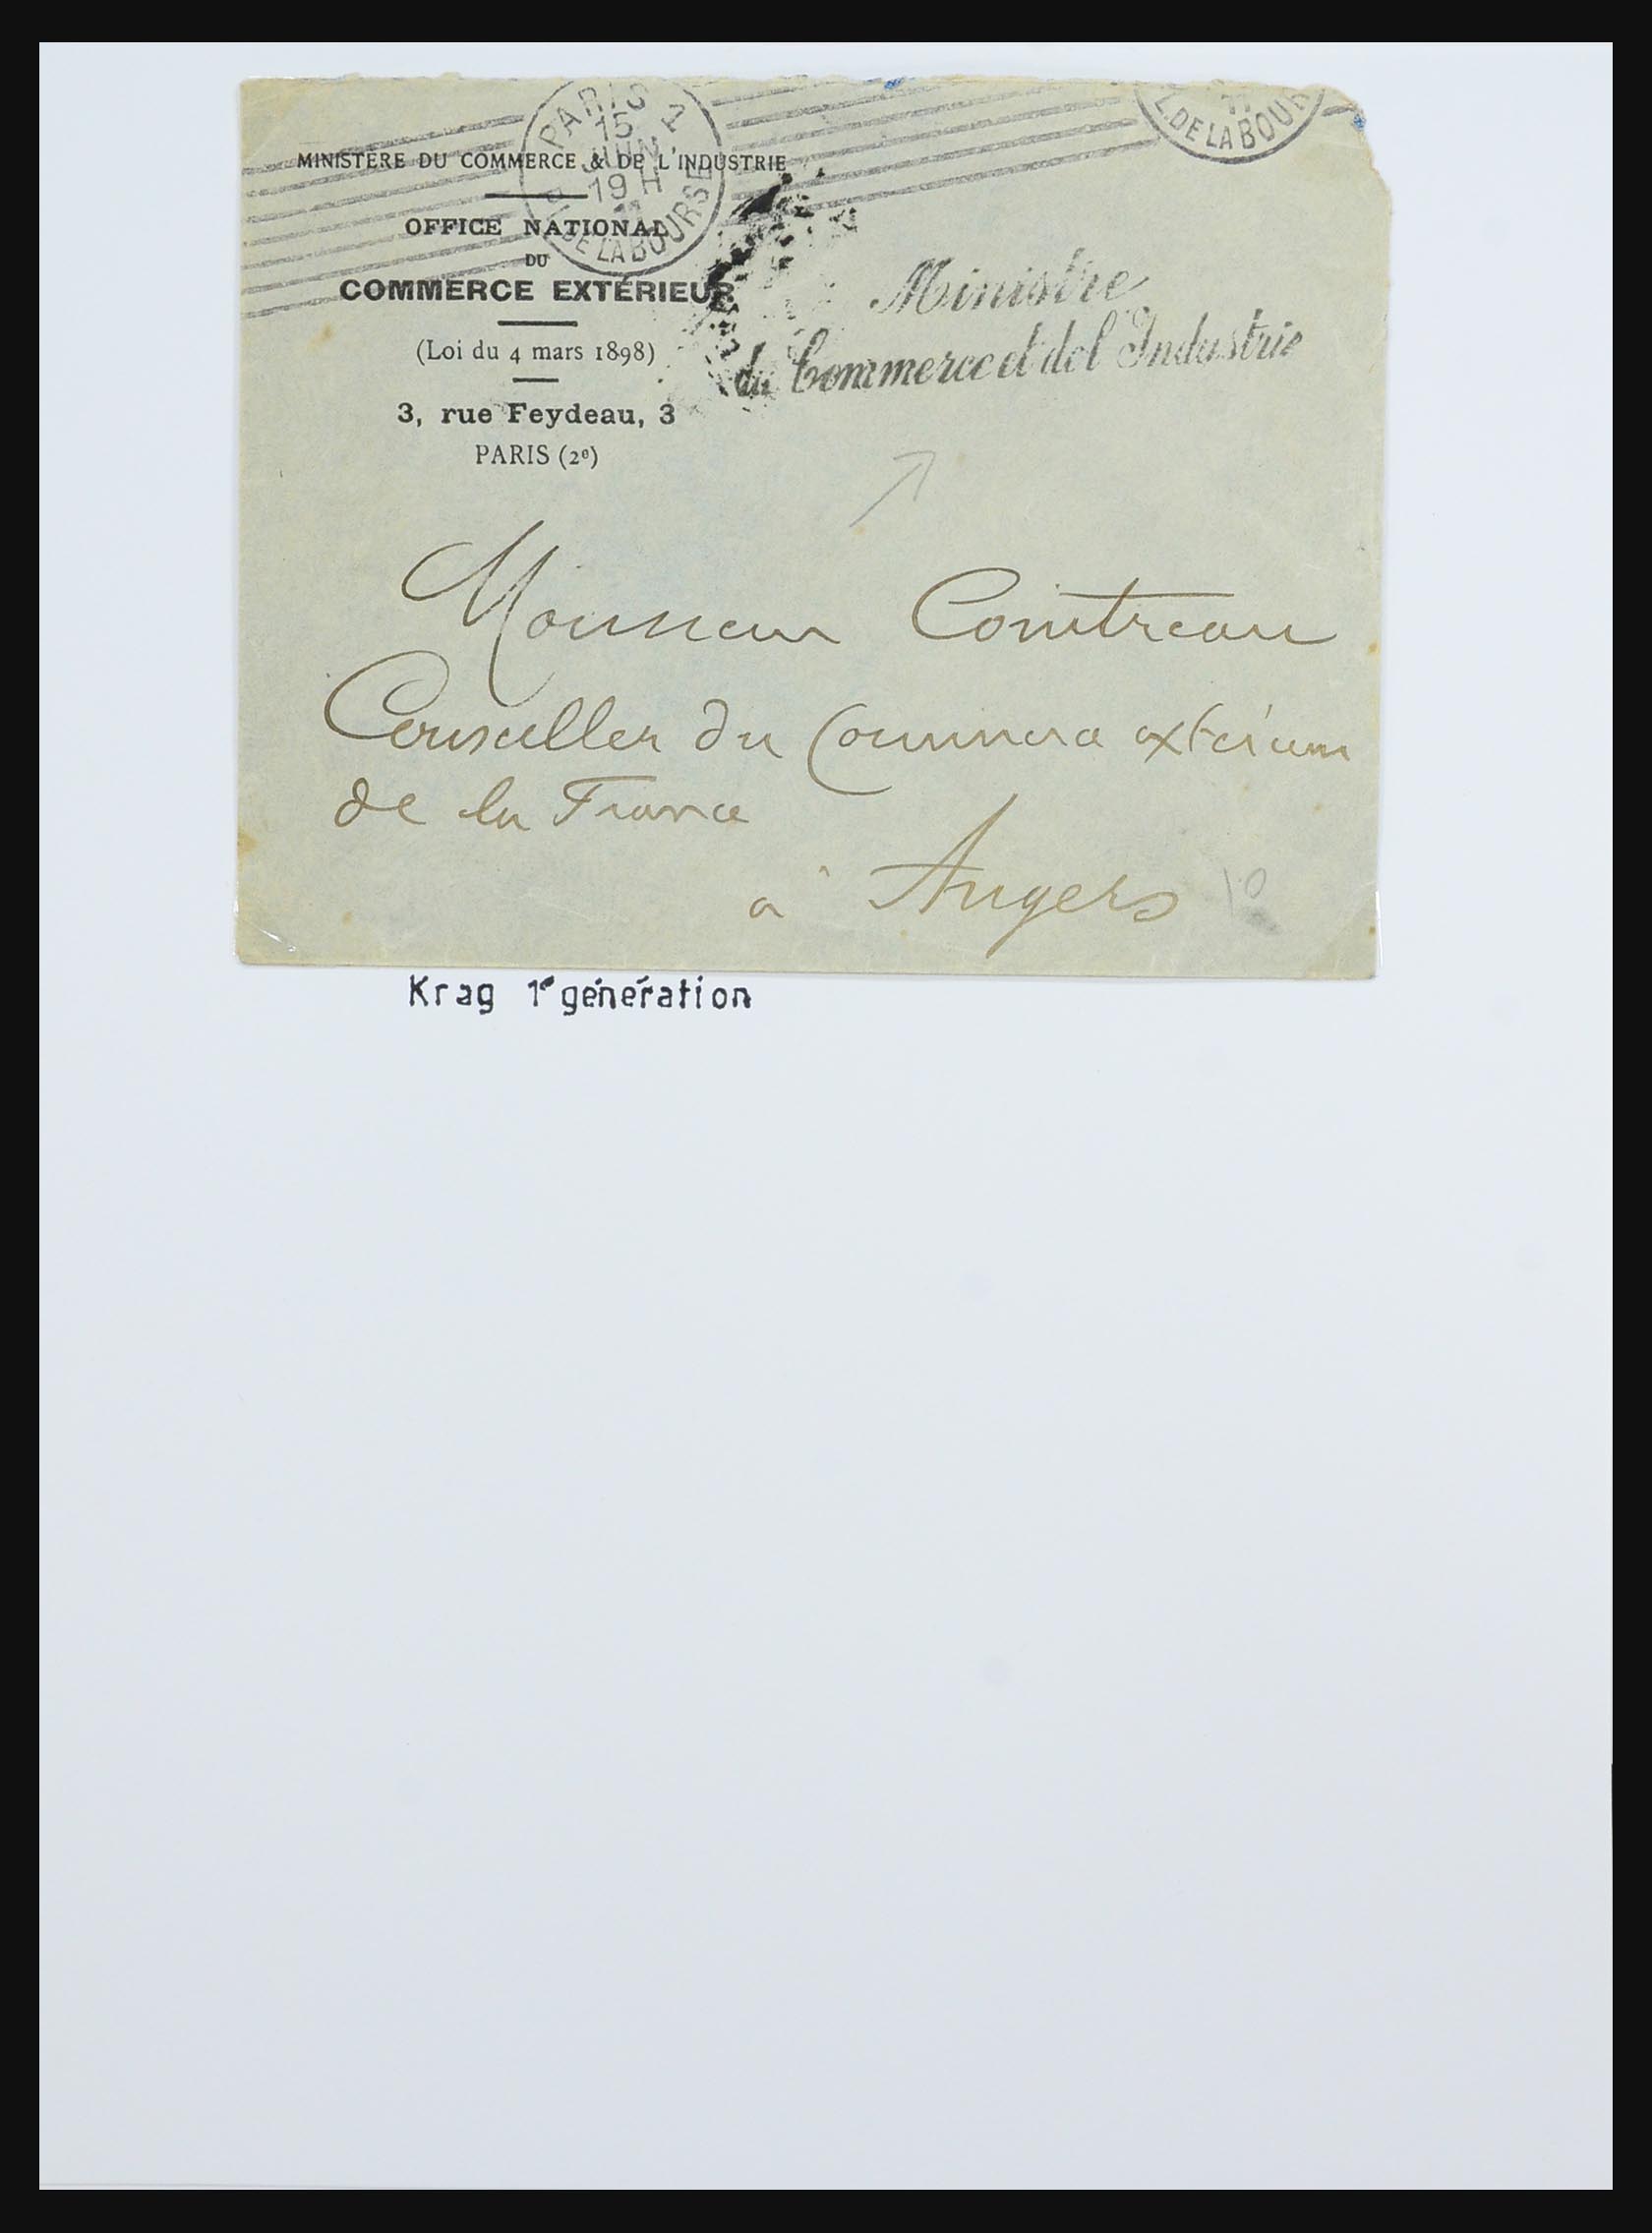 PARIS 1
15
JUIN
19 H
11
PL. DE LA BOURSE
11
PL. DE LA BOUR
MINISTÈRE DU COMMERCE & DE L'INDUSTRIE
OFFICE NATIONAL
DU
COMMERCE EXTÉRIEUR
(Loi du 4 mars 1898)
3, rue Feydeau, 3
PARIS (2e)
Ministre
du Commerce et de l'Industrie
Monsieur Cointreau
Conseiller du Commerce extérieur
de la France
à Angers
10
Krag 1e génération